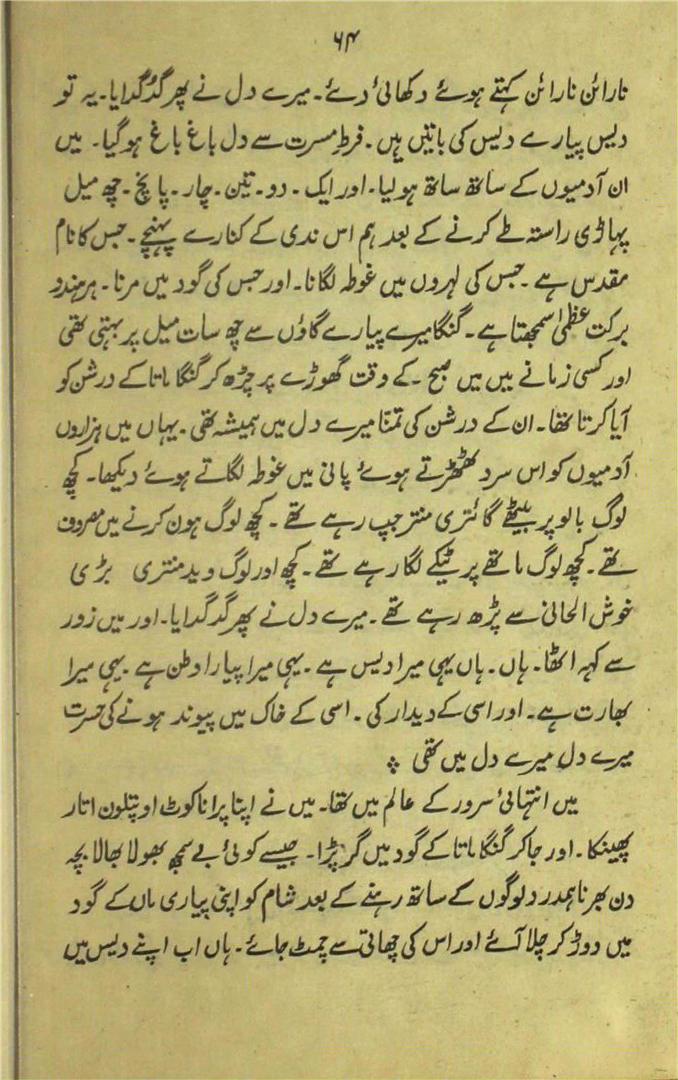 ۶۴
نارائن نارائن کہتے ہوئے دکھائی دئے۔ میرے دل نے پھر گُدگُدایا۔ یہ تو
دیس پیارے دیس کی باتیں ہیں۔ فرطِ مسرت سے دل باغ باغ ہو گیا۔ میں
ان آدمیوں کے ساتھ ساتھ ہو لیا۔ اور ایک۔ دو۔ تین۔ چار۔ پانچ۔ چھ میل
پہاڑی راستہ طے کرنے کے بعد ہم اس ندی کے کنارے پہنچے۔ جس کا نام
مقدس ہے۔ جس کی لہروں میں غوطہ لگانا۔ اور جس کی گود میں مرنا۔ ہر ہندو
برکت عظمیٰ سمجھتا ہے۔ گنگا میرے پیارے گاؤں سے چھ سات میل پر بہتی تھی
اور کسی زمانے میں میں صبح کے وقت گھوڑے پر چڑھ کر گنگا ماتا کے درشن کو
آیا کرتا تھا۔ ان کے درشن کی تمنّا میرے دل میں ہمیشہ تھی۔ یہاں میں ہزاروں
آدمیوں کو اس سرد ٹھٹھرتے ہوئے پانی میں غوطہ لگاتے ہوئے دیکھا۔ کچھ
لوگ بالو پر بیٹھے گائتری منتر جپ رہے تھے۔ کچھ لوگ ہون کرنے میں مصروف
تھے۔ کچھ لوگ ماتھے پر ٹیکے لگا رہے تھے۔ کچھ اور لوگ وید منتری بڑی
خوش الحانی سے پڑھ رہے تھے۔ میرے دل نے پھر گدگدایا۔ اور میں زور
سے کہہ اٹھا۔ ہاں۔ ہاں یہی میرا دیس ہے۔ یہی میرا پیارا وطن ہے۔ یہی میرا
بھارت ہے۔ اور اسی کے دیدار کی۔ اسی کے خاک میں پیوند ہونے کی حسرت
میرے دل میرے دل میں تھی ❖
میں انتہائی سرور کے عالم میں تھا۔ میں نے اپنا پرانا کوٹ او پتلون اتار
پھینکا۔ اور جا کر گنگا ماتا کے گود میں گر پڑا۔ جیسے کوئی بے سمجھ بھولا بھالا بچہ
دن بھر ناہمدرد لوگوں کے ساتھ رہنے کے بعد شام کو اپنی پیاری ماں کے گود
میں دوڑ کر چلا آئے اور اس کی چھاتی سے چمٹ جائے۔ ہاں اب اپنے دیس میں